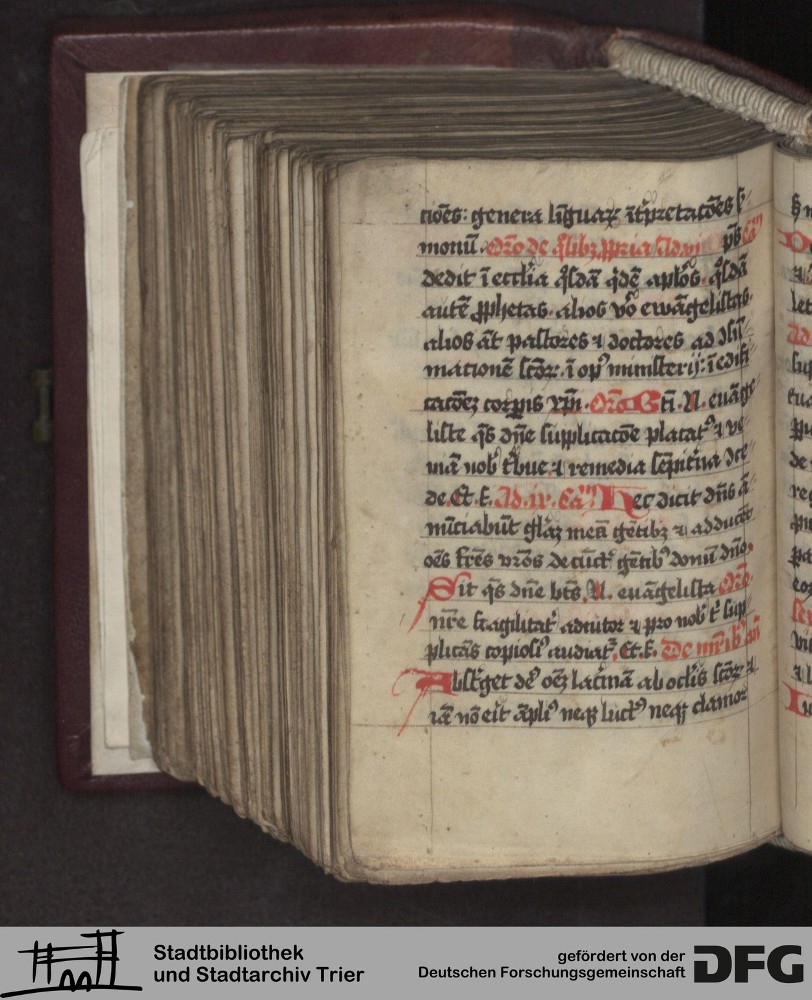 tiōēs: genera liguaꝝ ītp̄retacōes ẜ
monū. Oro de ꝗ̄libꝫ ꝓpria Ad
dedit ī eccl̄ia ꝗ̄sdā ꝗ̄dē apl̄os. ꝗ̄sdā
autē ꝓphetas. alios v̊o ewāgelistas.
alios āt pastores ⁊ doctores ad ↄsū
matione sc̄oꝝ. ī op᷒ ministerij: ī edifi
catōeꝫ corꝑis xp̄i. Oro Sc̄i .N. euāge
liste q̄s dn̄e supplicacōe placat᷒ ⁊ ve
niā nob̄ t̄bue ⁊ remedia sēpit̄na ↄce
de. Et. f. Ad. ix. Hec dicit dn̄s ā
nūciabūt gl̄aꝫ meā gētibꝫ ⁊ adducēt
oēs fr̄es vr̄os de cūct᷒ gētib᷒ donū dn̄o.
Sit q̄s dn̄e bt̄s .N. euāgelista Oro.
nr̄e fragilitat᷒ adiutor ⁊ pro nob̄ t᷒ sup
plicās copiosi᷒ audiat᷒. Et. f. De
Abst̄get de᷒ oēꝫ lac̄mā ab ocl̄is sc̄oꝝ ⁊
iā nō eīt āpli᷒ neqꝫ luct᷒ neqꝫ clamor
Stadtbibliothek
und Stadtarchiv Trier
gefördert von der
Deutschen Forschungsgemeinschaft
DFG